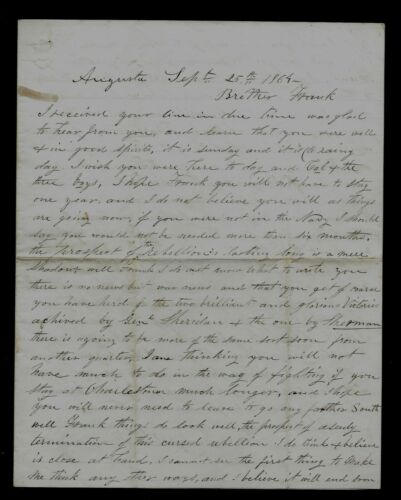 Augusta Sept 25th 1864
Brother Frank
I received your line in due time was glad
to hear from you, and learn that you were well
& in good spirits, it is sunday and it is a raing
day I wish you were here to day and Col & the
three boys, I hope Frank you will not have to stay
one year, and I do not believe you will as things
are going now, if you were not in the Navy I should
say you would not be needed more than six months,
the prospect of the Rebellion's lasting long is a mere
shadow well Frank I do not know what to write you
there is no news but war news and that you get of course
you have herd of the two brilliant and glorious Victories
achived by Genl Sheridan & the one by Sherman
there is agoing to be more of the same sort soon from
another quarter, I am thinking you will not
have much to do in the way of fighting if you
stay at Charlestown much longer, and I hope
you will never need to leave to go any farther South
well Frank things do look well, the prospect of a speedy
termination of this cursed rebellion I do think & believe
is close at hand, I cannot see the first thing to make
me think any other ways, and I believe it will end soon